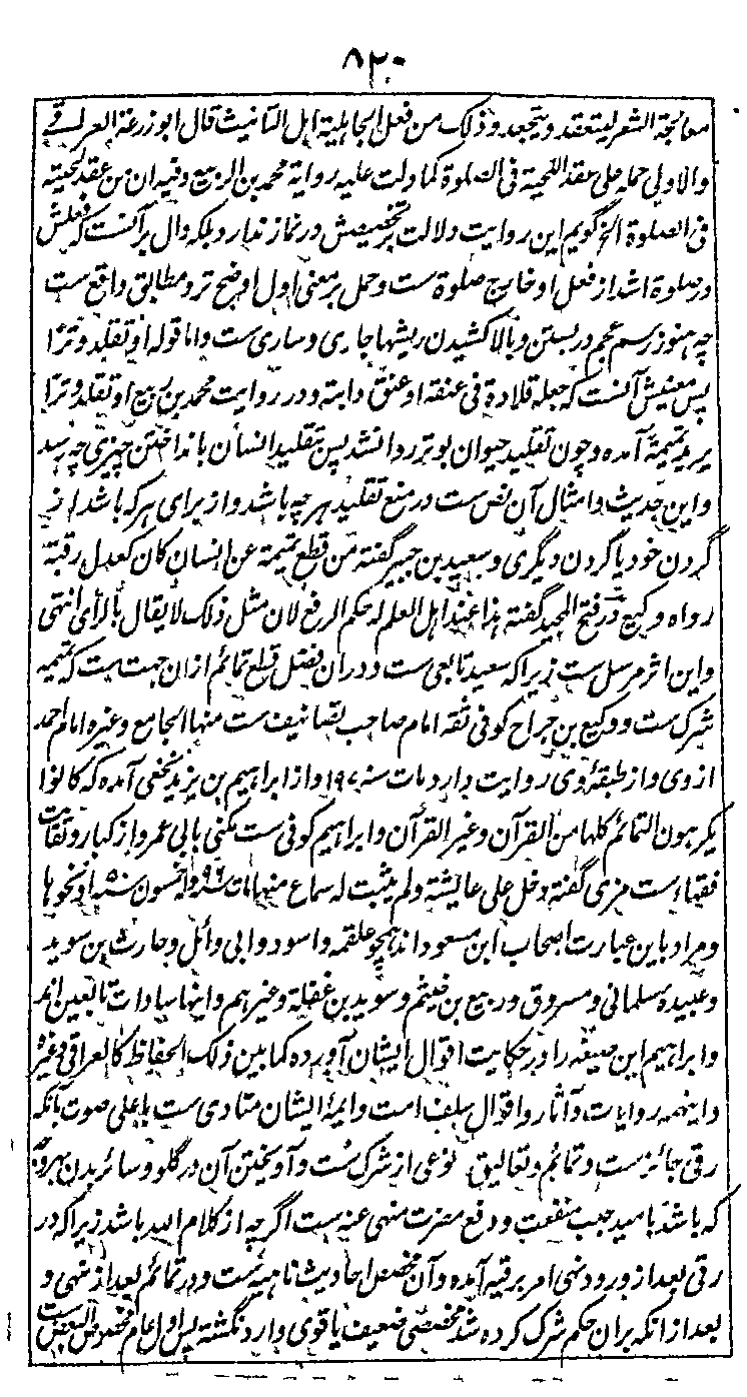 ۸۲۰
معالجة الشعر ليتعقد ويتجعد وذلك من فعل الجاهلية اهل التأنيث قال ابو زرعة العراقى
والاولى حمله على عقد اللحية فى الصلوة كما دلت عليه رواية محمد بن الربيع وفيه ان من عقد لحيته
فى الصلوة الخ گويم اين روايت دلالت بر تخصيصش در نماز ندارد بلكه دال بر آنست كه فعلش
در صلوة اشد از فعل او خارج صلوة ست وحمل بر معنى اول اوضح تر ومطابق واقع ست
چه هنوز رسم عجم در بستن وبالا كشيدن ريشها جارى وسارى ست واما قوله او تقلد وترا
پس معنيش آنست كه جعله قلادة فى عنقه او عنق دابته ودر روايت محمد بن ربيع او تقلد وترا
يريد تميمة آمده وچون تقليد حيوان بوتر روا نشد پس تقليد انسان بانداختن چيزى چه رسد
واين حديث وامثال آن نص ست در منع تقليد هر چه باشد واز براى هر كه باشد از
گردن خود يا گردن ديگرى وسعيد بن جبير گفته من قطع تميمة عن انسان كان كعدل رقبة
رواه وكيع در فتح المجيد گفته هذا عند اهل العلم له حكم الرفع لان مثل ذلك لا يقال بالرأى انتهى
واين اثر مرسل ست زيرا كه سعيد تابعى ست ودران فضل قطع تمائم ازان جهت ست كه تميمه
شرك ست ووكيع بن جراح كوفى ثقه امام صاحب تصانيف ست منها الجامع وغيره امام احمد
از وى واز طبقهٔ وى روايت دارد مات سنه ۱۹۷ واز ابراهيم بن يزيد نخعى آمده كه كانوا
يكرهون التمائم كلها من القرآن وغير القرآن وابراهيم كوفى ست مكنى بابى عمرو از كبار وثقات
فقهاء ست مزى گفته دخل على عايشة ولم يثبت له سماع منها مات سنه ۹۶ وله خمسون سنه او نحوها
ومراد باين عبارت اصحاب ابن مسعود اند همچو علقمه واسود وابى وائل وحارث بن سويد
وعبيده سلمانى ومسروق وربيع بن خيثم وسويد بن غفلة وغيرهم واينها سادات تابعين اند
وابراهيم اين صيغه را در حكايت اقوال ايشان آورده كما بين ذلك الحفاظ كالعراقى وغيره
واينهمه روايات وآثار واقوال سلف امت وائمهٔ ايشان منادى ست باعلى صوت بآنكه
رقى جائز ست وتمائم وتعاليق نوعى از شرك ست وآويختن آن در گلو وسائر بدن بهر وجه
كه باشد باميد جلب منفعت ودفع مضرت منهى عنه ست اگرچه از كلام الله باشد زيرا كه در
رقى بعد از ورود نهى امر برقيه آمده وآن مخصص احاديث ناهيه ست ودر تمائم بعد از نهى و
بعد از انكه بران حكم شرك كرده شد مخصصى ضعيف يا قوى وارد نگشته پس اول عام مخصوص البعض ست